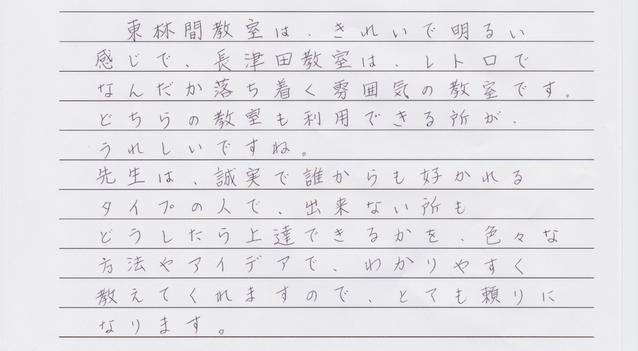 東林間教室は、きれいで明るい
感じで、長津田教室は、レトロで
なんだか落ち着く雰囲気の教室です。
どちらの教室も利用できる所が、
うれしいですね。
先生は、誠実で誰からも好かれる
タイプの人で、出来ない所も
どうしたら上達できるかを、色々な
方法やアイデアで、わかりやすく
教えてくれますので、とても頼りに
なります。